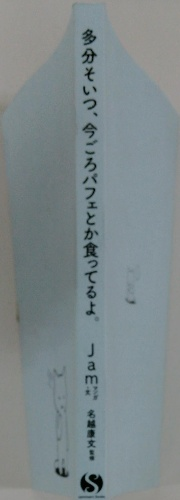 多分そいつ、今ごろパフェとか食ってるよ。
Jam マンガ・文
名越康文 監修
S